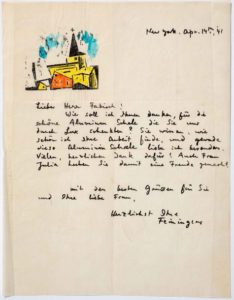 New York. Apr. 14th, 41
Lieber Herr Fabisch!
Wie soll ich Ihnen danken, für die
schöne Aluminium Schale die Sie uns
durch Lux schenkten? Sie wissen, wie
schön ich Ihre Arbeit finde, und gerade
diese Aluminium Schale liebe ich besonders
Vielen, herzlichen Dank dafür! Auch Frau
Julia haben Sie damit eine Freude gemacht!
mit den besten Grüssen für Sie
und Ihre liebe Frau,
Herzlichst Ihre
Feiningers